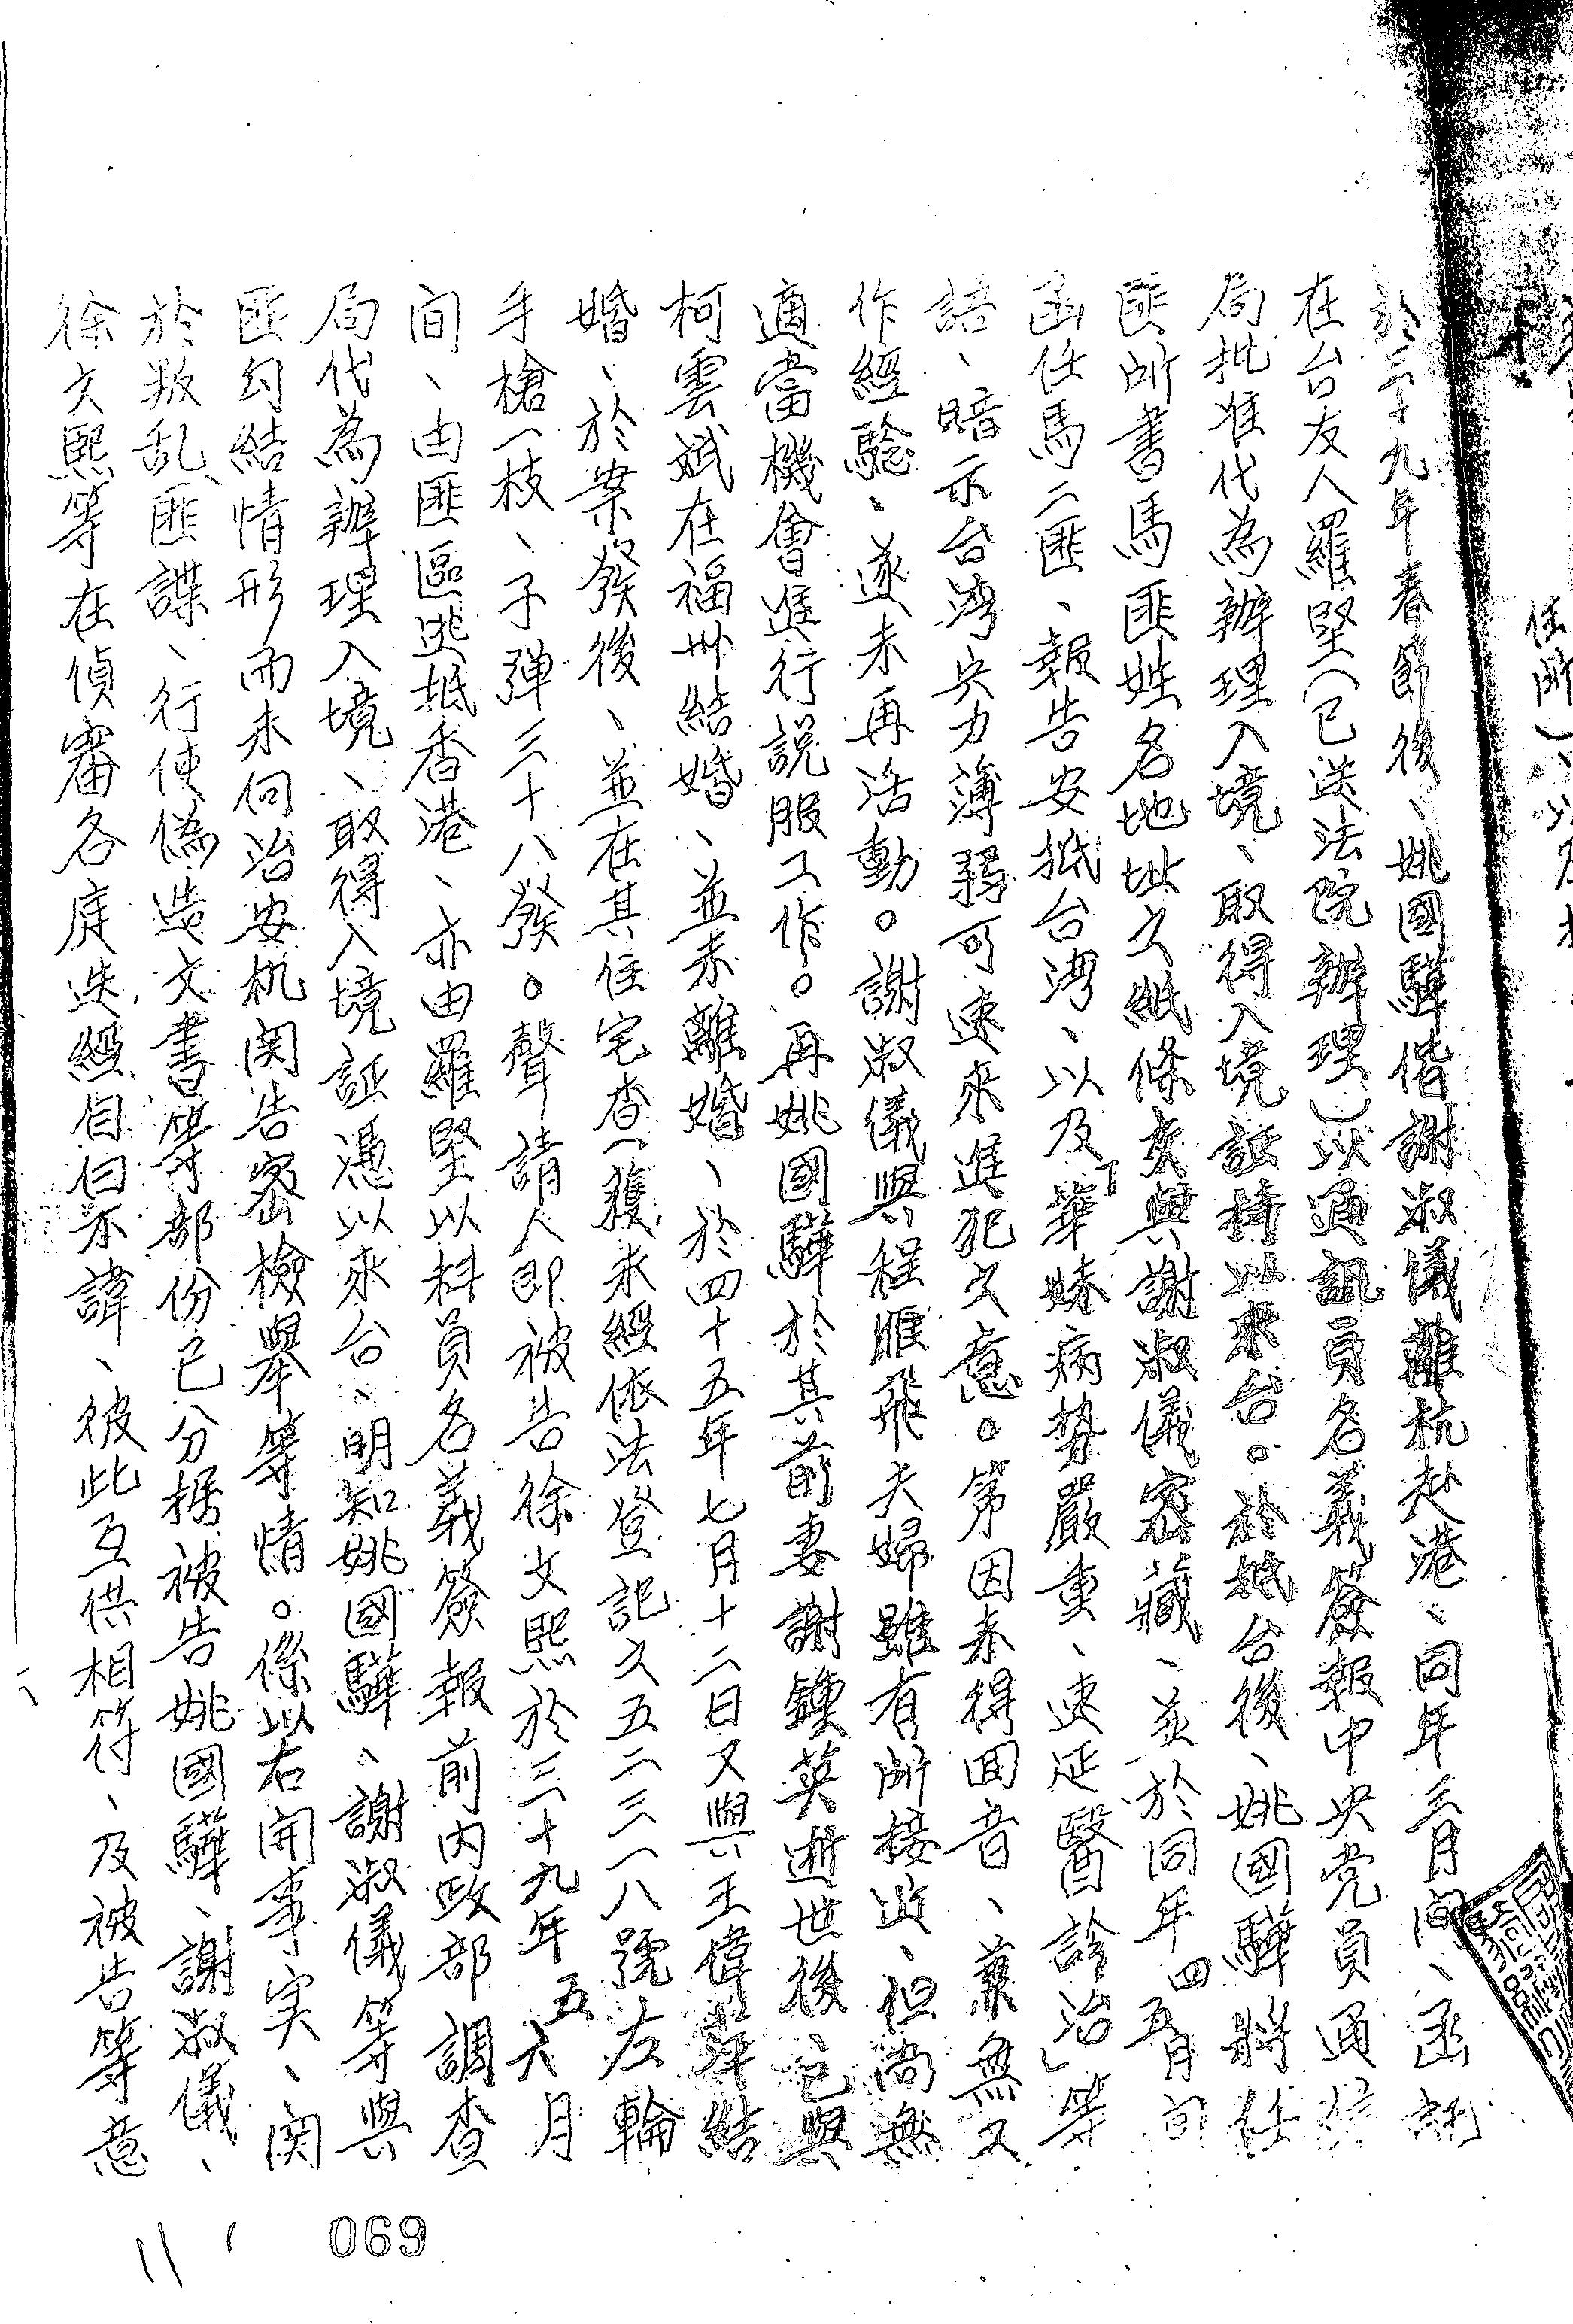 任所)、以及
於三十九年春節後、姚國驊偕謝淑儀離杭赴港、同年三月間、函託
在台友人羅堅(已送法院辦理)以通訊員名義簽報中央党員通訊
局批准代為辦理入境、取得入境証持以來台。於抵台後、姚國驊將任
匪所書馬匪姓名地址之紙條交與謝淑儀密藏、並於同年四五月間
函任馬二匪、報告安抵台湾、以及「華妹病勢嚴重、速延醫診治」等
語、暗示台湾兵力薄弱可速來進犯之意。第因未得回音、兼無又
作經驗、遂未再活動。謝淑儀與程雁飛夫婦雖有所接近、但尚無
適當機會進行説服工作。再姚國驊於其前妻謝鍊英逝世後已與
柯雲斌在福州結婚、並未離婚、於四十五年七月十二日又與王偉萍結
婚、於案發後、並在其住宅查獲未經依法登記之五二三一八號左輪
手槍一枝、子弹三十八發。聲請人即被告徐文熙於三十九年五六月
间、由匪區逃抵香港、亦由羅堅以科員名義簽報前內政部調查
局代為辦理入境、取得入境証憑以來台、明知姚國驊、謝淑儀等與
匪勾結情形而未向治安机関告密檢舉等情。係以右開事实、関
於叛乱、匪諜、行使偽造文書等部份已分據被告姚國驊、謝淑儀、
徐文熙等在偵審各庭迭經自白不諱、彼此互供相符、及被告等意
069